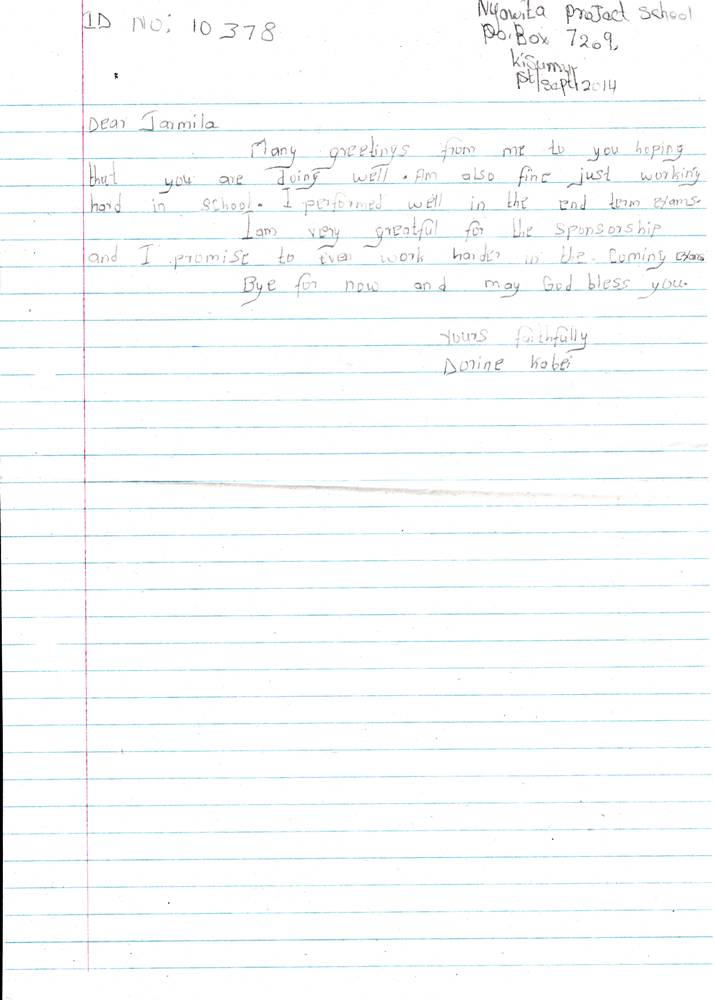 ID NO: 10378
Nyawita project school
Po.Box 7209,
Kisumu,
1st/sept/2014
Dear Jarmila
Many greetings from me to you hoping
that you are doing well. Am also fine just working
hard in school. I performed well in the end term exams.
I am very greatful for the sponsorship
and I promise to even work harder in the coming exams
Bye for now and may God bless you.
Yours faithfully
Dorine Kobei